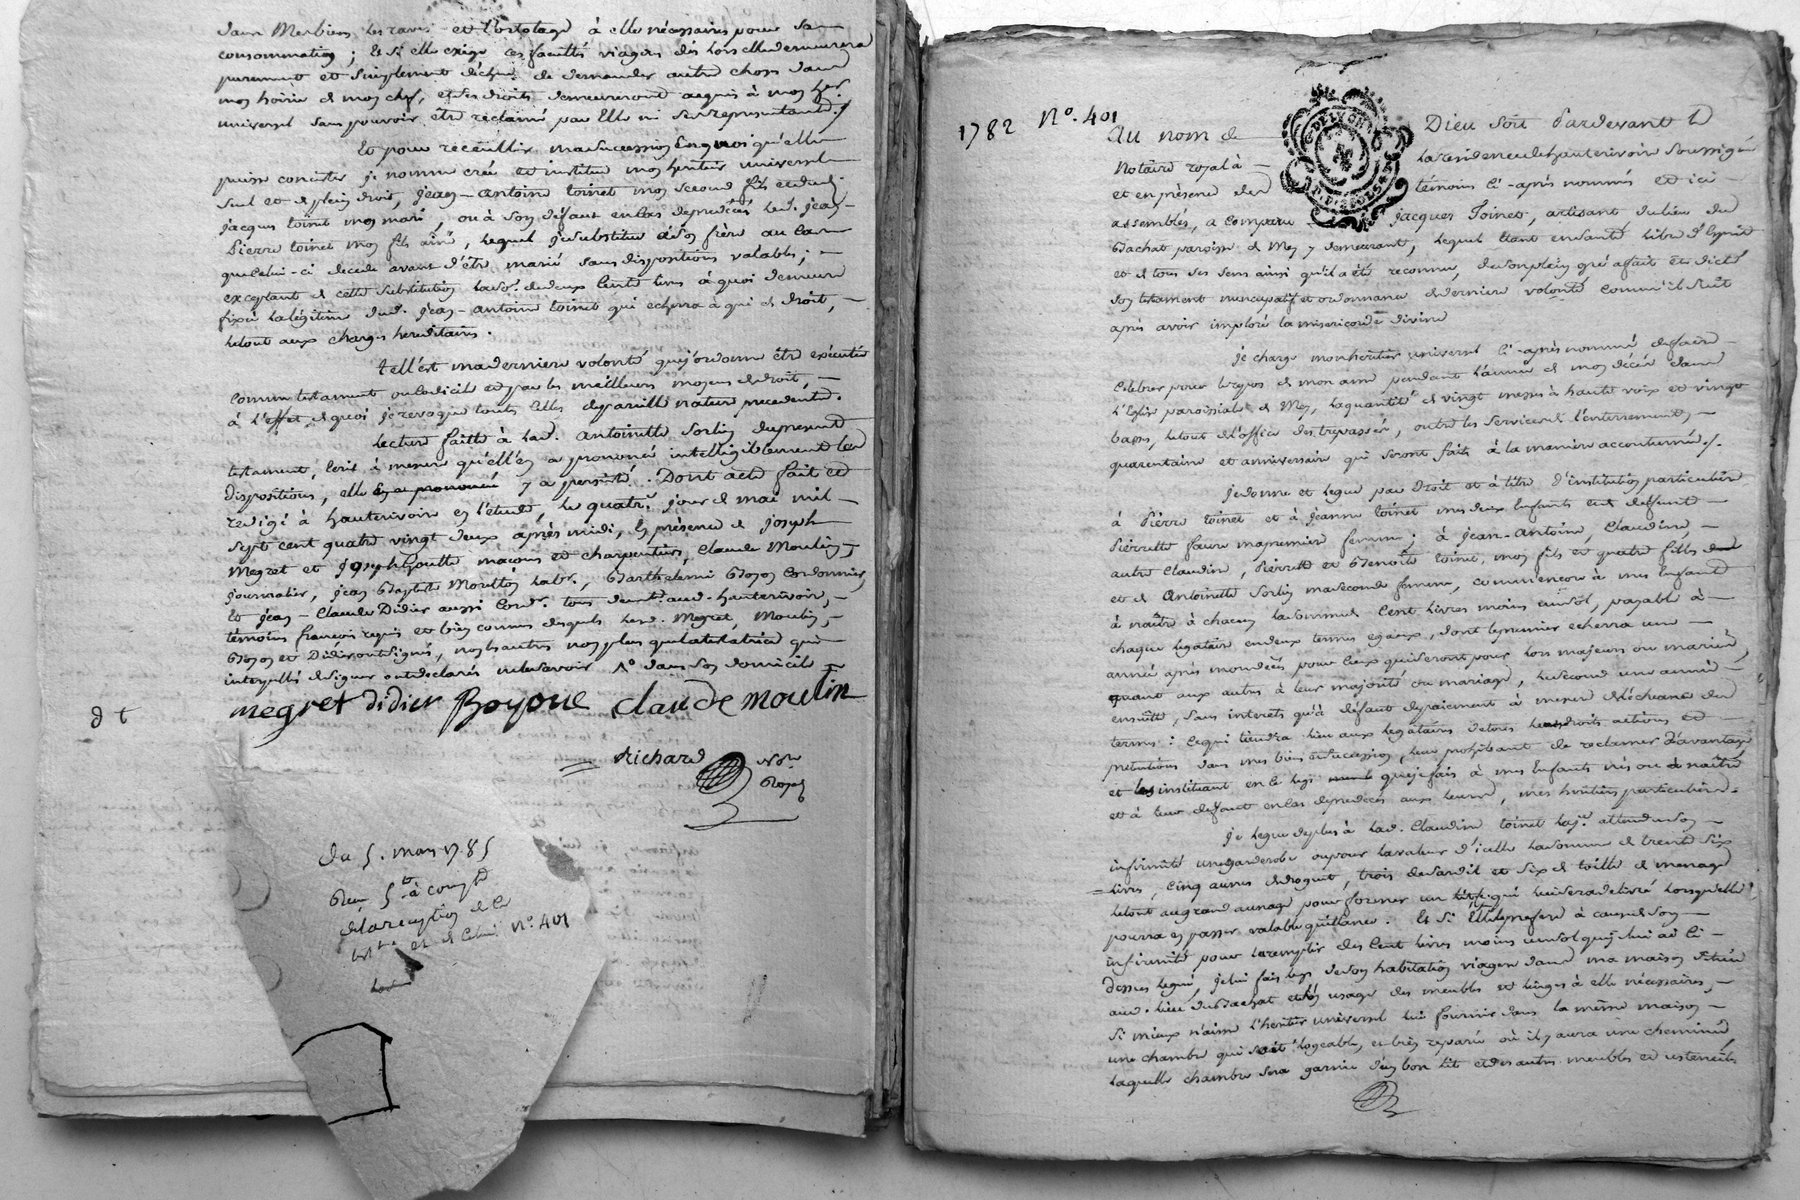 dans Mes biens les raves et l'ortolage à elle nécessaires pour sa
consommation ; Et si elle exige ces facultés viagers dès lors elle demeurera
purement et simplement déchue de demander autre chose dans
mon hoirie de mon chef, et ses droits demeureront acquis à mon her.
universel sans pouvoir être réclamé par Elle ni ses représentants ./
Et pour recœuillir ma succession En quoi qu'elle
puisse consister je nomme crée et institue mon heritier universel
seul et de plein droit, jean-antoine toinet mon second fils et dud.
jacques toinet mon mari, ou à son défaut en cas de prédécès led. jean-
Pierre toinet mon fils aîné, lequel je substitue à son frère au cas
que celui-ci decede avant d'être marié sans dispositions valables ;
exceptant de cette substitution la so. de deux Cents livres à quoi demeure
fixée la légitime dud. jean-antoine toinet qui echerra à qui de droit,
le tout aux charges hereditaires.
telle est ma derniere volonté que j'ordonne être exécutée
comme testament ou Codicile et par les meilleurs moyens de droit,
à l'effet de quoi je revoque toutes Celles de pareille nature precedente.
Lecture faitte à lad. antoinette Sorlin du present
testament, Ecrit à mesure qu'elle en a prononcé intelligiblement les
dispositions, elle y a persisté. Dont acte fait et
redigé à hauterivoire en l'étude, le quatr. jour de mai mil
sept cent quatre vingt deux après midi, En présence de joseph
Megret et joseph Goutte maçons et charpentiers, Claude Moulin
journalier, jean Baptiste Moulton labr., Barthelemi Boyon Cordonnier,
Et jean-Claude Didier aussi Cordr. tous demt. aud. hauterivoire,
témoins françois requis et bien connus desquels lesd. Megret, Moulin,
Boyon et Didier ont signés, non les autres non plus que la testatrice qui
interpellés de signer ont declarés ne le savoir dans son domicile
megret didier Boyoue claude moulin
Richard Nre
Royal
Du 5. mars 1785
Reçu 5tt à compte
de la reception de ce
testt. et de Celui N°. 401
1782 N°. 401
Au nom de Dieu soit Pardevant Le
Notaire royal à la residence de hauterivoire soussigné
et en présence des témoins Ci-après nommés et ici
assemblés, a comparu jacques Toinet, artisant du lieu du
Bachat paroisse de Mey y demeurant, lequel étant en santé libre d'Esprit
et de tous ses sens ainsi qu'il a été reconnu, de son plein gré a fait et dicté
son testament nuncupatif et ordonnance de derniere volonté comm'il suit
après avoir imploré la misericorde divine
je charge mon héritier universel Ci-après nommé de faire
Célébrer pour le repos de mon ame pendant l'année de mon décès dans
l'Eglise paroissiale de Mey, la quantité de vingt messes à haute voix et vingt
basses, le tout de l'office des trepassés, outre les services de l'enterrement,
quarantaine et anniversaire qui seront faits à la maniere accoutumée ./.
je donne et legue par Droit et à titre d'institution particuliere
à Pierre toinet et à jeanne toinet mes deux Enfants et de defunte
Pierrette faure ma premiere femme ; à jean-Antoine, Claudine,
autre Claudine, Pierrette et Benoite toinet, mon fils et quatre filles
et de Antoinette Sorlin ma seconde femme, comm'encore à mes Enfants
à naître à chacun la somme de Cent livres moins un sol, payable à
chaque légataire en deux termes egaux, dont le premier echerra une
année après mon décès pour Ceux qui seront pour lors majeurs ou mariés,
quant aux autres à leur majorité ou mariage, le second une année
ensuitte, sans interets qu'à défaut de paiement à mesure de l'échéance des
termes : Ce qui tiendra lieu aux legataires de tous leurs droits actions et
prétentions dans mes biens et succession, leur prohibant de reclamer d'avantage
et les instituant en ce legs que je fais à mes Enfants nés ou à naître
et à leur défaut en cas de predecès aux leurs, mes héritiers particuliers.
Je legue de plus à lad. Claudine toinet laj.e attendu son
infirmité une garderobe ou pour la valeur d'icelle la somme de trente six
livres, Cinq aunes de droguet, trois de cardil et six de toille de menage
le tout au grand aunage pour former un lit qui lui sera delivré lorsqu'elle
pourra en passer valable quittance. Et si Elle prefere à cause de son
infirmité pour le remplir des Cent livres moins un sol que je lui ai Ci-
dessus legué, je lui fais legs de son habitation viagere dans ma maison située
aud. lieu du Bachat et les usages des meubles et linges à elle nécessaires,
si mieux n'aime l'heritier universel lui fournir dans la même maison
une chambre qui soit logeable, et bien reparée où il y aura une cheminée
laquelle chambre sera garnie d'un bon lit et des autres meubles et ustenciles